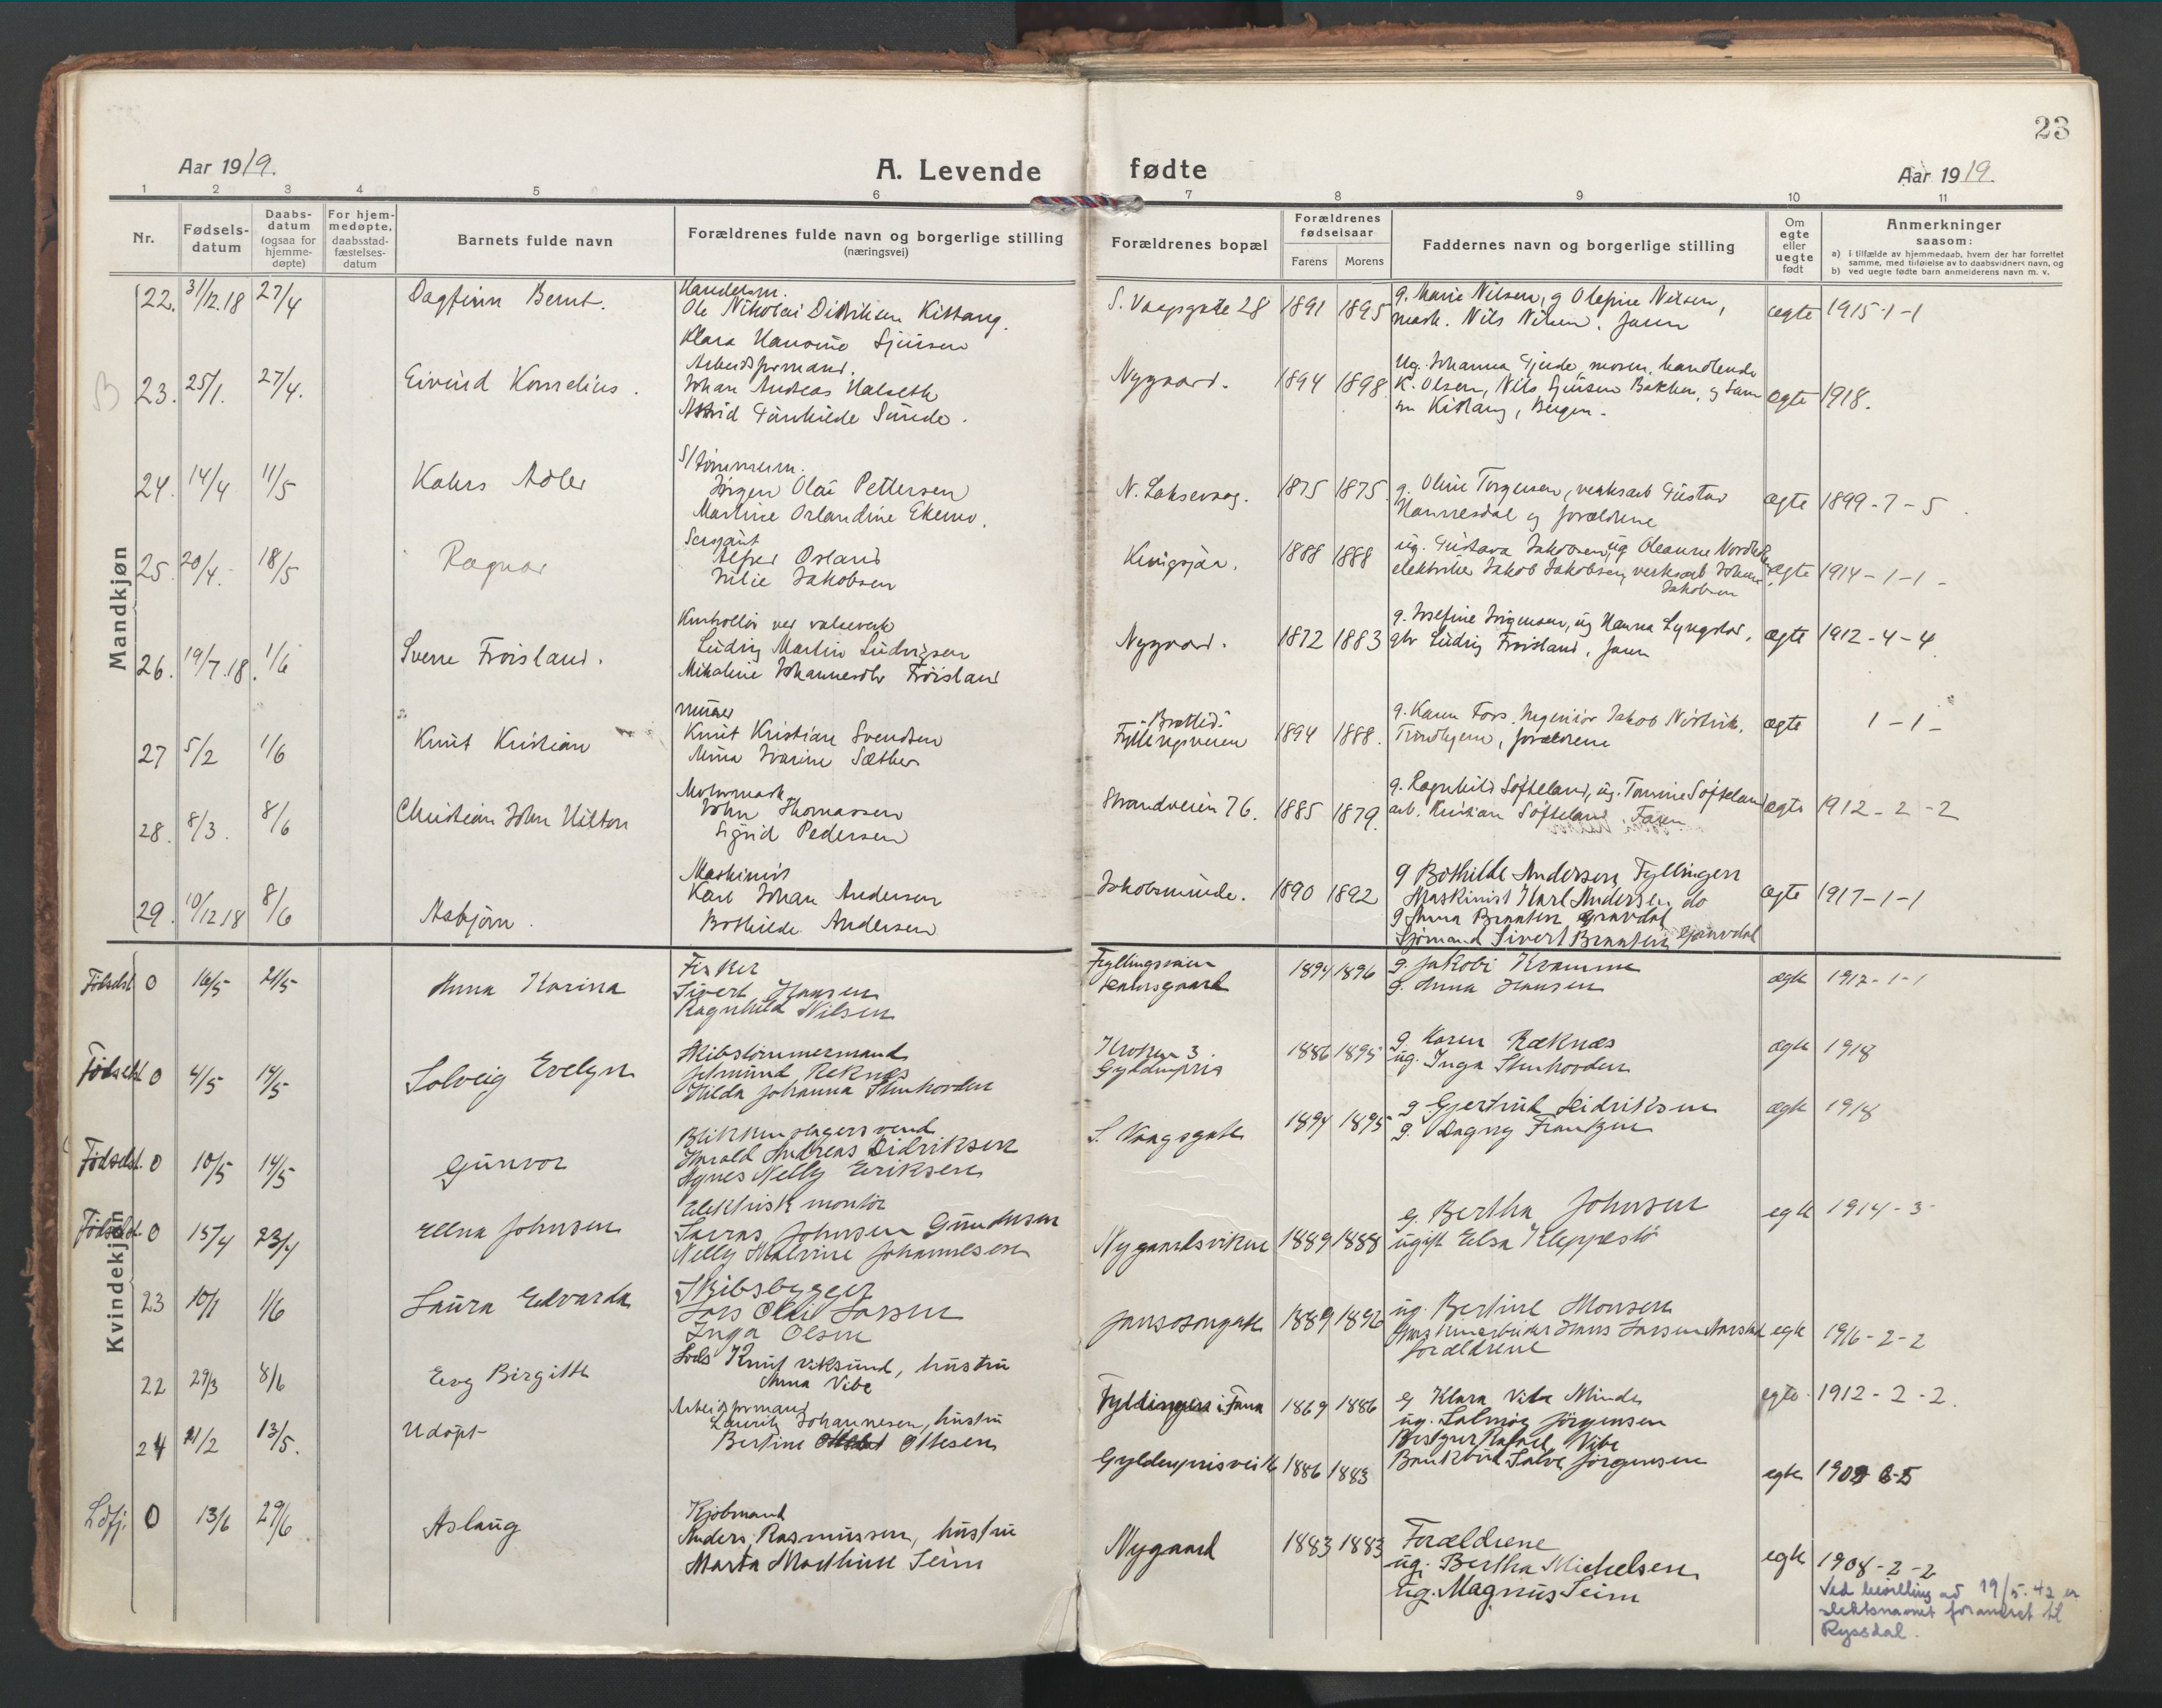 23
Aar 1919.
A. Levende
fødte
Aar 1919
1 2 3 4 5 6 7 8 9 10 11
Nr.
Fødsels-
datum
Daabs-
datum
(ogsaa for
hjemme-
døpte)
For hjem-
medøpte,
daabsstad-
fæstelses-
datum
Barnets fulde navn
Forældrenes fulde navn og borgerlige stilling
(næringsvei)
Forældrenes bopæl
Forældrenes
fødselsaar
Farens Morens
Faddernes navn og borgerlige stilling
Om
egte
eller
uegte
født
Anmerkninger
saasom:
a) i tilfælde av hjemmedaab, hvem der har forrettet
samme, med tilføielse av to daabsvidners navn, og
b) ved uegte fødte barn anmelderens navn m. v.
Mandkjøn
22. 31/12.18 27/4 Dagfinn Bernt.
Ole Nikolai Didriksen Kittang.
Klara Hansine Sjursen
S. Vaagsgate 28 1891 1895
g. Marie Nilsen, g Olefine Nilsen,
mask. Nils Nilsen. faren
ægte 1915-1-1
B 23. 25/1. 27/4. Eivind Kornelius.
Arbeidsformand.
Johan Andreas Halseth
Astrid Gunhilde Sunde.
Nygaard. 1894 1898.
Ug. Johanna Gjerde, moren, handlende
K. Olsen, Nils Sjursen Bakken, g
Kittang, Bergen.
ægte 1918.
24. 14/4 11/5 Adler
S/tømmerm.
Jørgen Olai Pettersen
Martine Orlandine Ekemo.
N. Laksevaag. 1875 1875.
g. Oline Torgersen, verksarb Gustav
Hannesdal og forældrene
ægte 1899-7-5
25. 20/4. 18/5 Ragnar
Sergant
Alfred Osland
Julie Jakobsen
Kringsjaa. 1888 1888
ug. Gustava Jakobsen, ug Oleanne
elektriker Jakob Jakobsen, verksarb Johan
Jakobsen
ægte 1914-1-1-
26. 19/7.18. 1/6 Sverre Frøisland.
Kontrollør ved valseverk
Ludvig Martin Ludvigsen
Mikaline Johannesdtr Frøisland
Nygaard. 1872 1883
g. Josefine Jørgensen, ug Hanna Lyngstad,
gbr Ludvig Frøisland, faren
ægte 1912-4-4
27 5/2 1/6 Knut Kristian
murer
Knut Kristian Svendsen
Anna Ivarine Sæther
"Brattlid"
Fyllingsveien 1894 1888.
g. Karen Fors. Ingeniør Jakob
Trondhjem, forældrene
ægte 1-1-
28. 8/3. 8/6 Christian John Hilton
Motormask.
John Thomassen
Sigrid Pedersen
Strandveien 76. 1885 1879.
g. Ragnhild Søfteland, ug. Tomine Søfteland
arb. Kristian Søfteland Faren
ægte 1912-2-2
29. 10/12 18 8/6 Asbjørn.
Maskinist
Karl Johan Andersen
Bothilde Andersen
Jakobsminde. 1890 1892
g Bothilde Andersen Fyllingen
Maskinist Karl Andersen do
g Anna Braaten Gravdal
Sjømand Sivert Braaten Gravdal
ægte 1917-1-1
Kvindekjøn
Fødselst. 0 16/5 21/5 Anna Karina
Fisker
Sivert Hansen
Ragnhild Nilsen
Fyllingsveien
1894 1896
g. Jakobi Kramme
g. Anna Hansen
ægte 1917-1-1
Fødselst. 0 4/5 14/5 Solveig Evelyn
Skibstømmermand
Reknes
Hilda Johanna Stenhovden
Kroken 3
Gyldenpris
1886 1895
g. Karen Reknæs
ug. Inga Stenhovden
ægte 1918
Fødselst. 0 10/5 14/5 Gunvor
Blikkenslagersvend
Harald Andreas Didriksen
Agnes Nelly Eriksen
S. Vaagsgate 1894 1895
g. Gjertrud Didriksen
g. Dagny Frantzen
ægte 1918
Fødselst. 0 15/4 23/4 Elena Johnsen
Elektrisk montør
Johnsen Gundersen
Nelly Malvine Johannesen
Nygaardsviken 1889 1888
g. Bertha Johnsen
ugift Elsa Kleppestø
egte 1914-3-
23 10/1 1/6 Laura Edvarda
Skibsbygger
Lars Olai Larsen
Inga Olsen
1889 1896
ug. Bertine Monsen
Hans Larsen
forældrene
egte 1916-2-2
22 29/3 8/6 Evy Birgitte
Lods Knut Viksund, hustru
Anna Vibe
Fyldingen i Fana 1869 1886
g Klara Vibe Minde
ug. Solmøy Jørgensen
Bestyrer Rafael Vibe
Salve Jørgensen
egte 1912-2-2.
24 11/2 13/5. Udøpt
Arbeidsformand
Lauritz Johannesen, hustru
Bertine Ottesen
Gyldenprisvei 16 1886 1883
egte 1909 6-5
0 13/6 29/6 Aslaug
Kjøbmand
Anders Rasmussen, hustru
Marta Mathine Seim
Nygaard 1883 1883
Forældrene
ug. Bertha Mickelsen
ug. Magnus Seim
egte 1908-2-2
Ved bevilling av 19/5.42 er
slektsnavnet forandret til
Ryssdal.